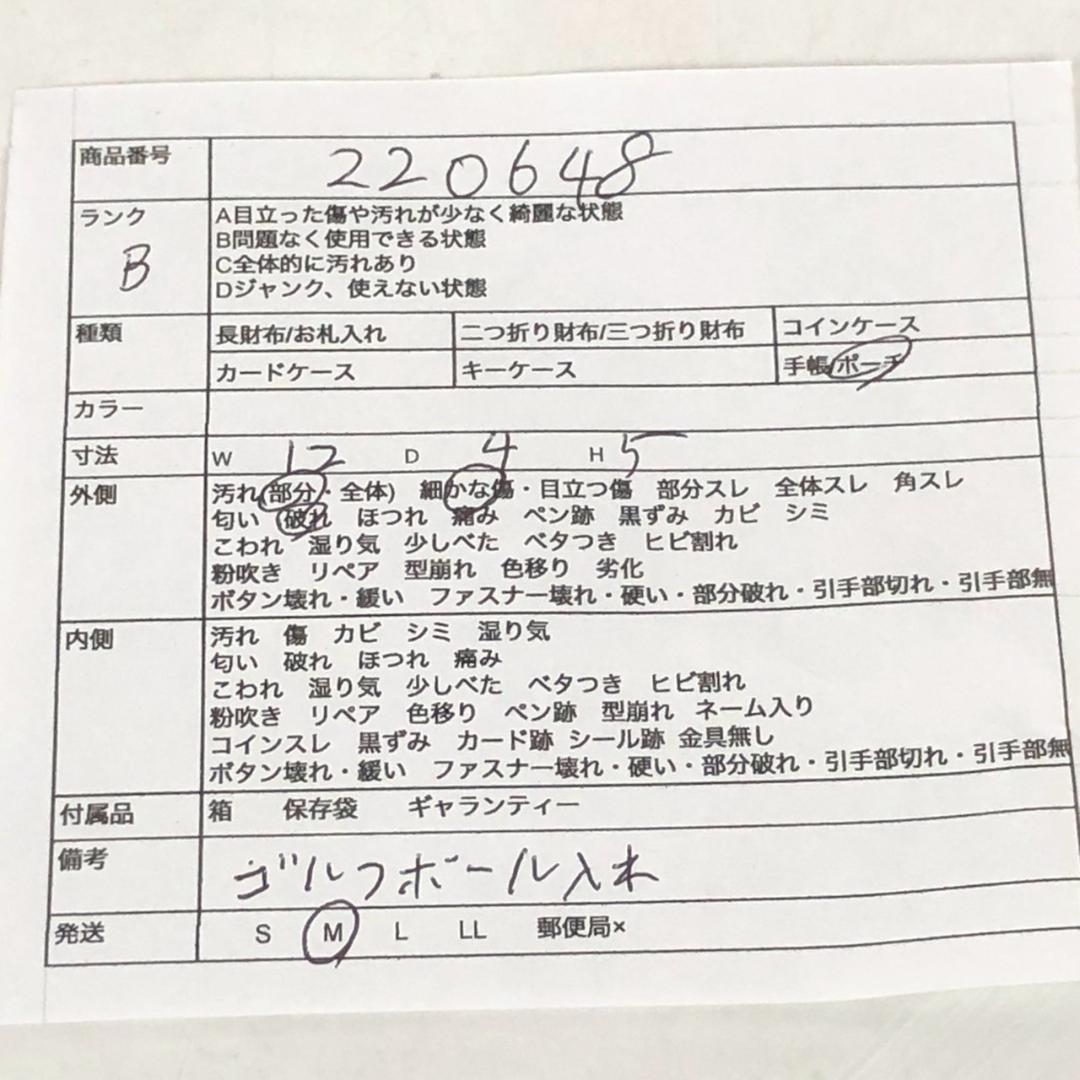 商品番号 220648
ランク B
A目立った傷や汚れが少なく綺麗な状態
B問題なく使用できる状態
C全体的に汚れあり
Dジャンク、使えない状態
種類 長財布/お札入れ 二つ折り財布/三つ折り財布 コインケース
カードケース キーケース 手帳/ポーチ
カラー
寸法 W 12 D 4 H 5
外側 汚れ(部分・全体) 細かな傷・目立つ傷 部分スレ 全体スレ 角スレ
匂い 破れ ほつれ 痛み ペン跡 黒ずみ カビ シミ
こわれ 湿り気 少しべた ベタつき ヒビ割れ
粉吹き リペア 型崩れ 色移り 劣化
ボタン壊れ・緩い ファスナー壊れ・硬い・部分破れ・引手部切れ・引手部無
内側 汚れ 傷 カビ シミ 湿り気
匂い 破れ ほつれ 痛み
こわれ 湿り気 少しべた ベタつき ヒビ割れ
粉吹き リペア 色移り ペン跡 型崩れ ネーム入り
コインスレ 黒ずみ カード跡 シール跡 金具無し
ボタン壊れ・緩い ファスナー壊れ・硬い・部分破れ・引手部切れ・引手部無
付属品 箱 保存袋 ギャランティー
備考 ゴルフボール入れ
発送 S M L LL 郵便局×